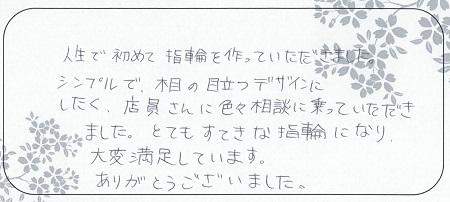 人生で初めて指輪を作っていただきました。
シンプルで、木目の目立つデザインに
したく、店員さんに色々相談に乗っていただき
ました。とてもすてきな指輪になり、
大変満足しています。
ありがとうございました。